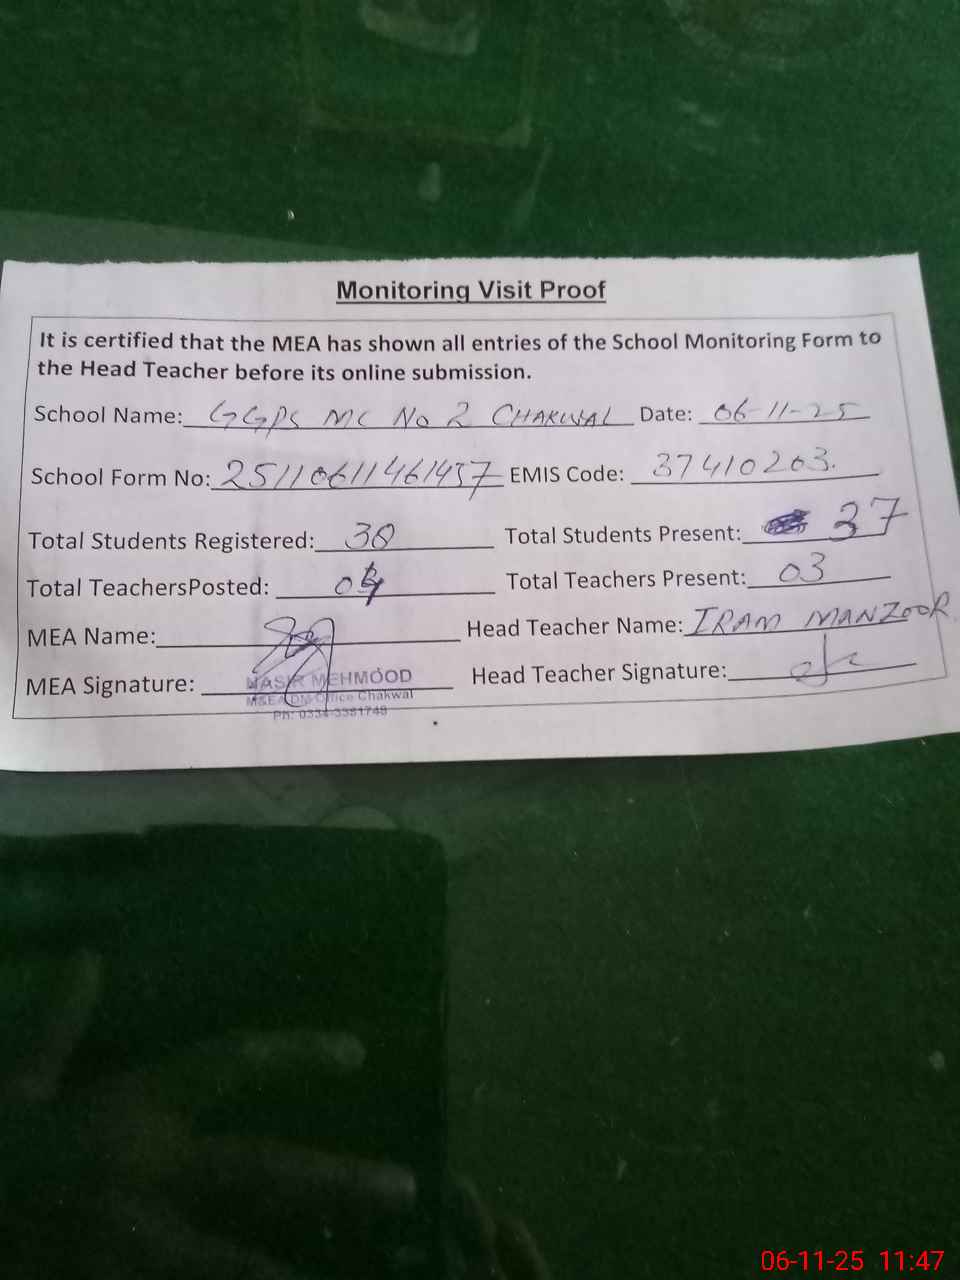 Monitoring Visit Proof
It is certified that the MEA has shown all entries of the School Monitoring Form to
the Head Teacher before its online submission.
School Name: GGPS MC No 2 CHAKWAL Date: 06-11-25
School Form No: 25110611461437 EMIS Code: 37410203.
Total Students Registered: 38 Total Students Present: 37
Total TeachersPosted: 04 Total Teachers Present: 03
MEA Name: Head Teacher Name: IRAM MANZOOR
MEA Signature: Head Teacher Signature:
NASIR MEHMOOD
M&EA DM Office Chakwal
Ph: 0334-
06-11-25 11:47